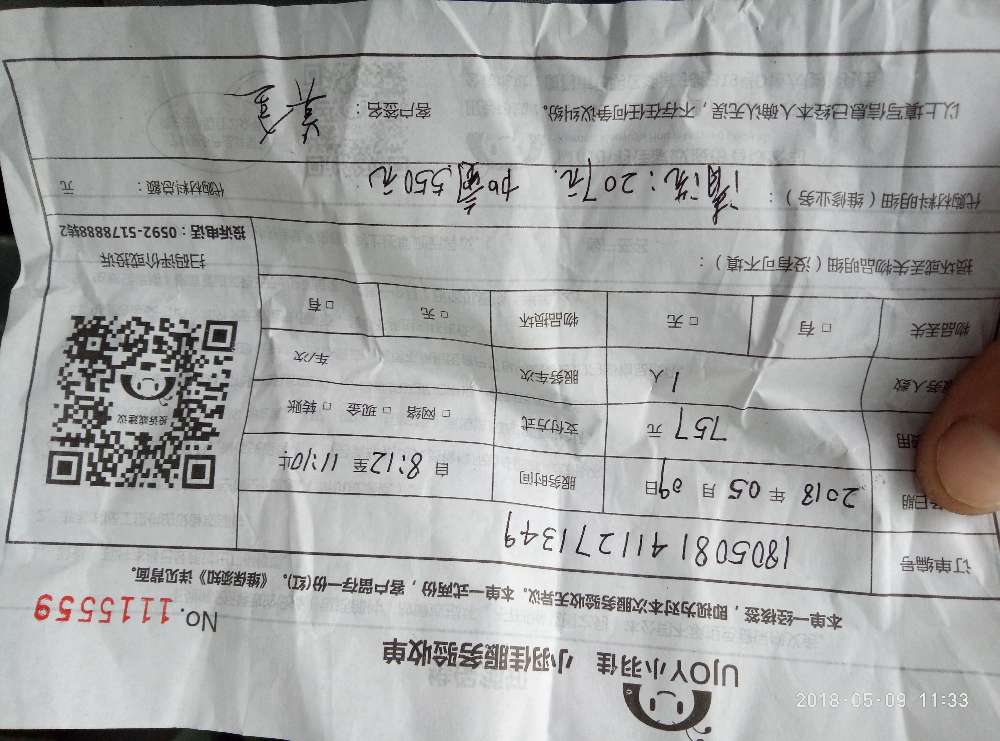 UJOY小羽佳 小羽佳服务验收单
NO. 1115559
本单一经核签，即视为对本次服务验收无异议。本单一式两份，客户留存一份(红)。《维保须知》详见背面。
订单编号 180508141127 1349
日期 2018 年 05 月 09 日 服务时间 自 8:12 至 11:10 止
用 757 元 支付方式 □ 网络 □ 现金 □ 转账
服务人数 1 人 服务车次 车/次
物品丢失 □ 有 □ 无 物品损坏 □ 无 □ 有
投诉或建议
扫码评价或投诉
投诉电话：0592-5178888转2
损坏或丢失物品明细（没有可不填）：
代购材料明细（维修业务）： 清洗：207元. 加氟 550元 代购材料总额： 元
以上填写信息已经本人确认无误，不存在任何争议纠纷。 客户签名：
2018-05-09 11:33